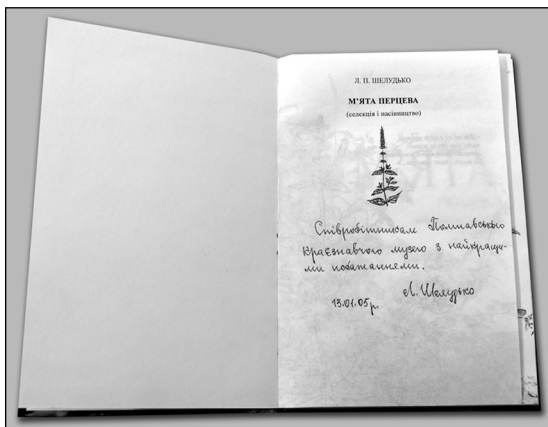 Л. П. ШЕЛУДЬКО
М'ЯТА ПЕРЦЕВА
(селекція і насінництво)
Співробітникам Полтавського
краєзнавчого музею з найкращи-
ми побажаннями.
13.01.05р. Л. Шелудько